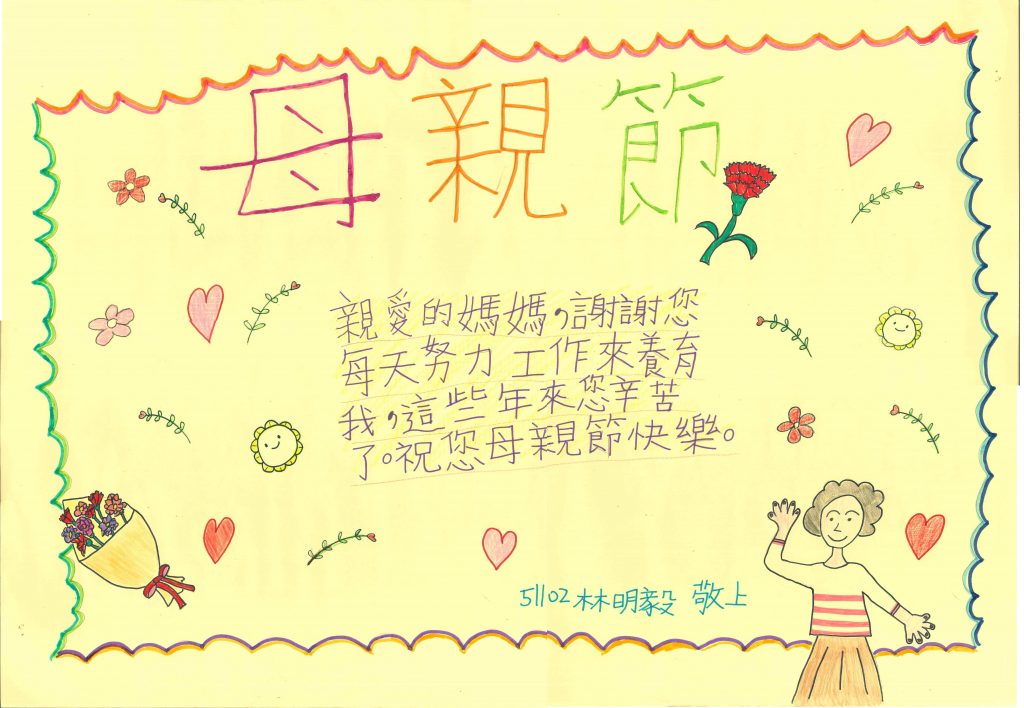 母親節
親愛的媽媽，謝謝您
每天努力 工作來養育
我，這些年來您辛苦
了。祝您母親節快樂。
51102林明毅 敬上